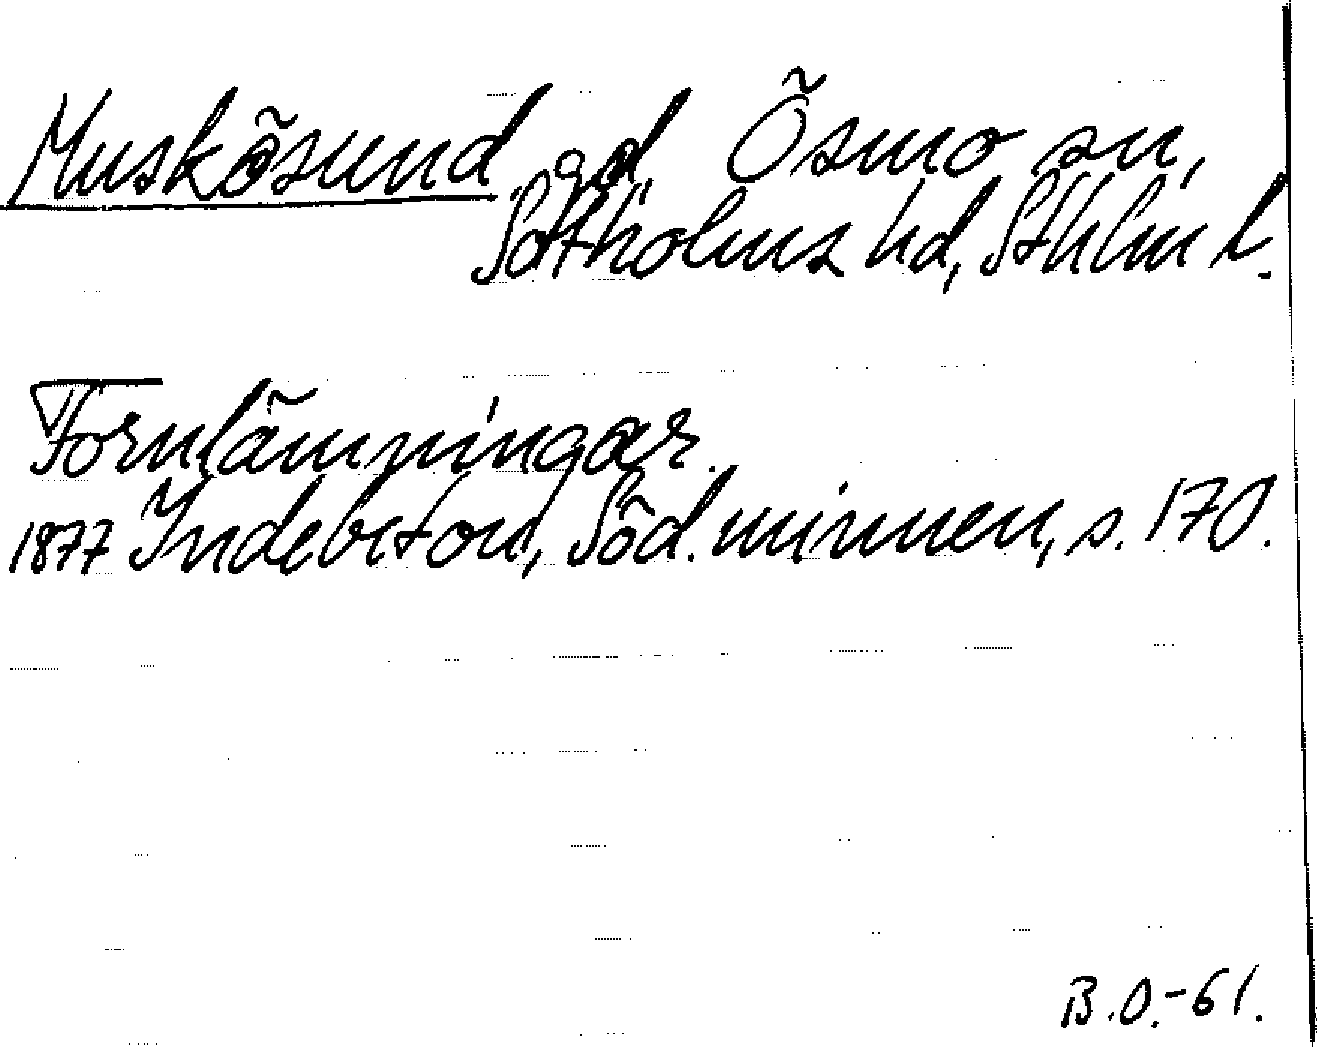 Muskösund gd, Ösmo sn,
Sotholms hd, Sthlm l.
Fornlämningar.
1877 Indebetou, Söd. minnen, s. 170.
B.O.-61.